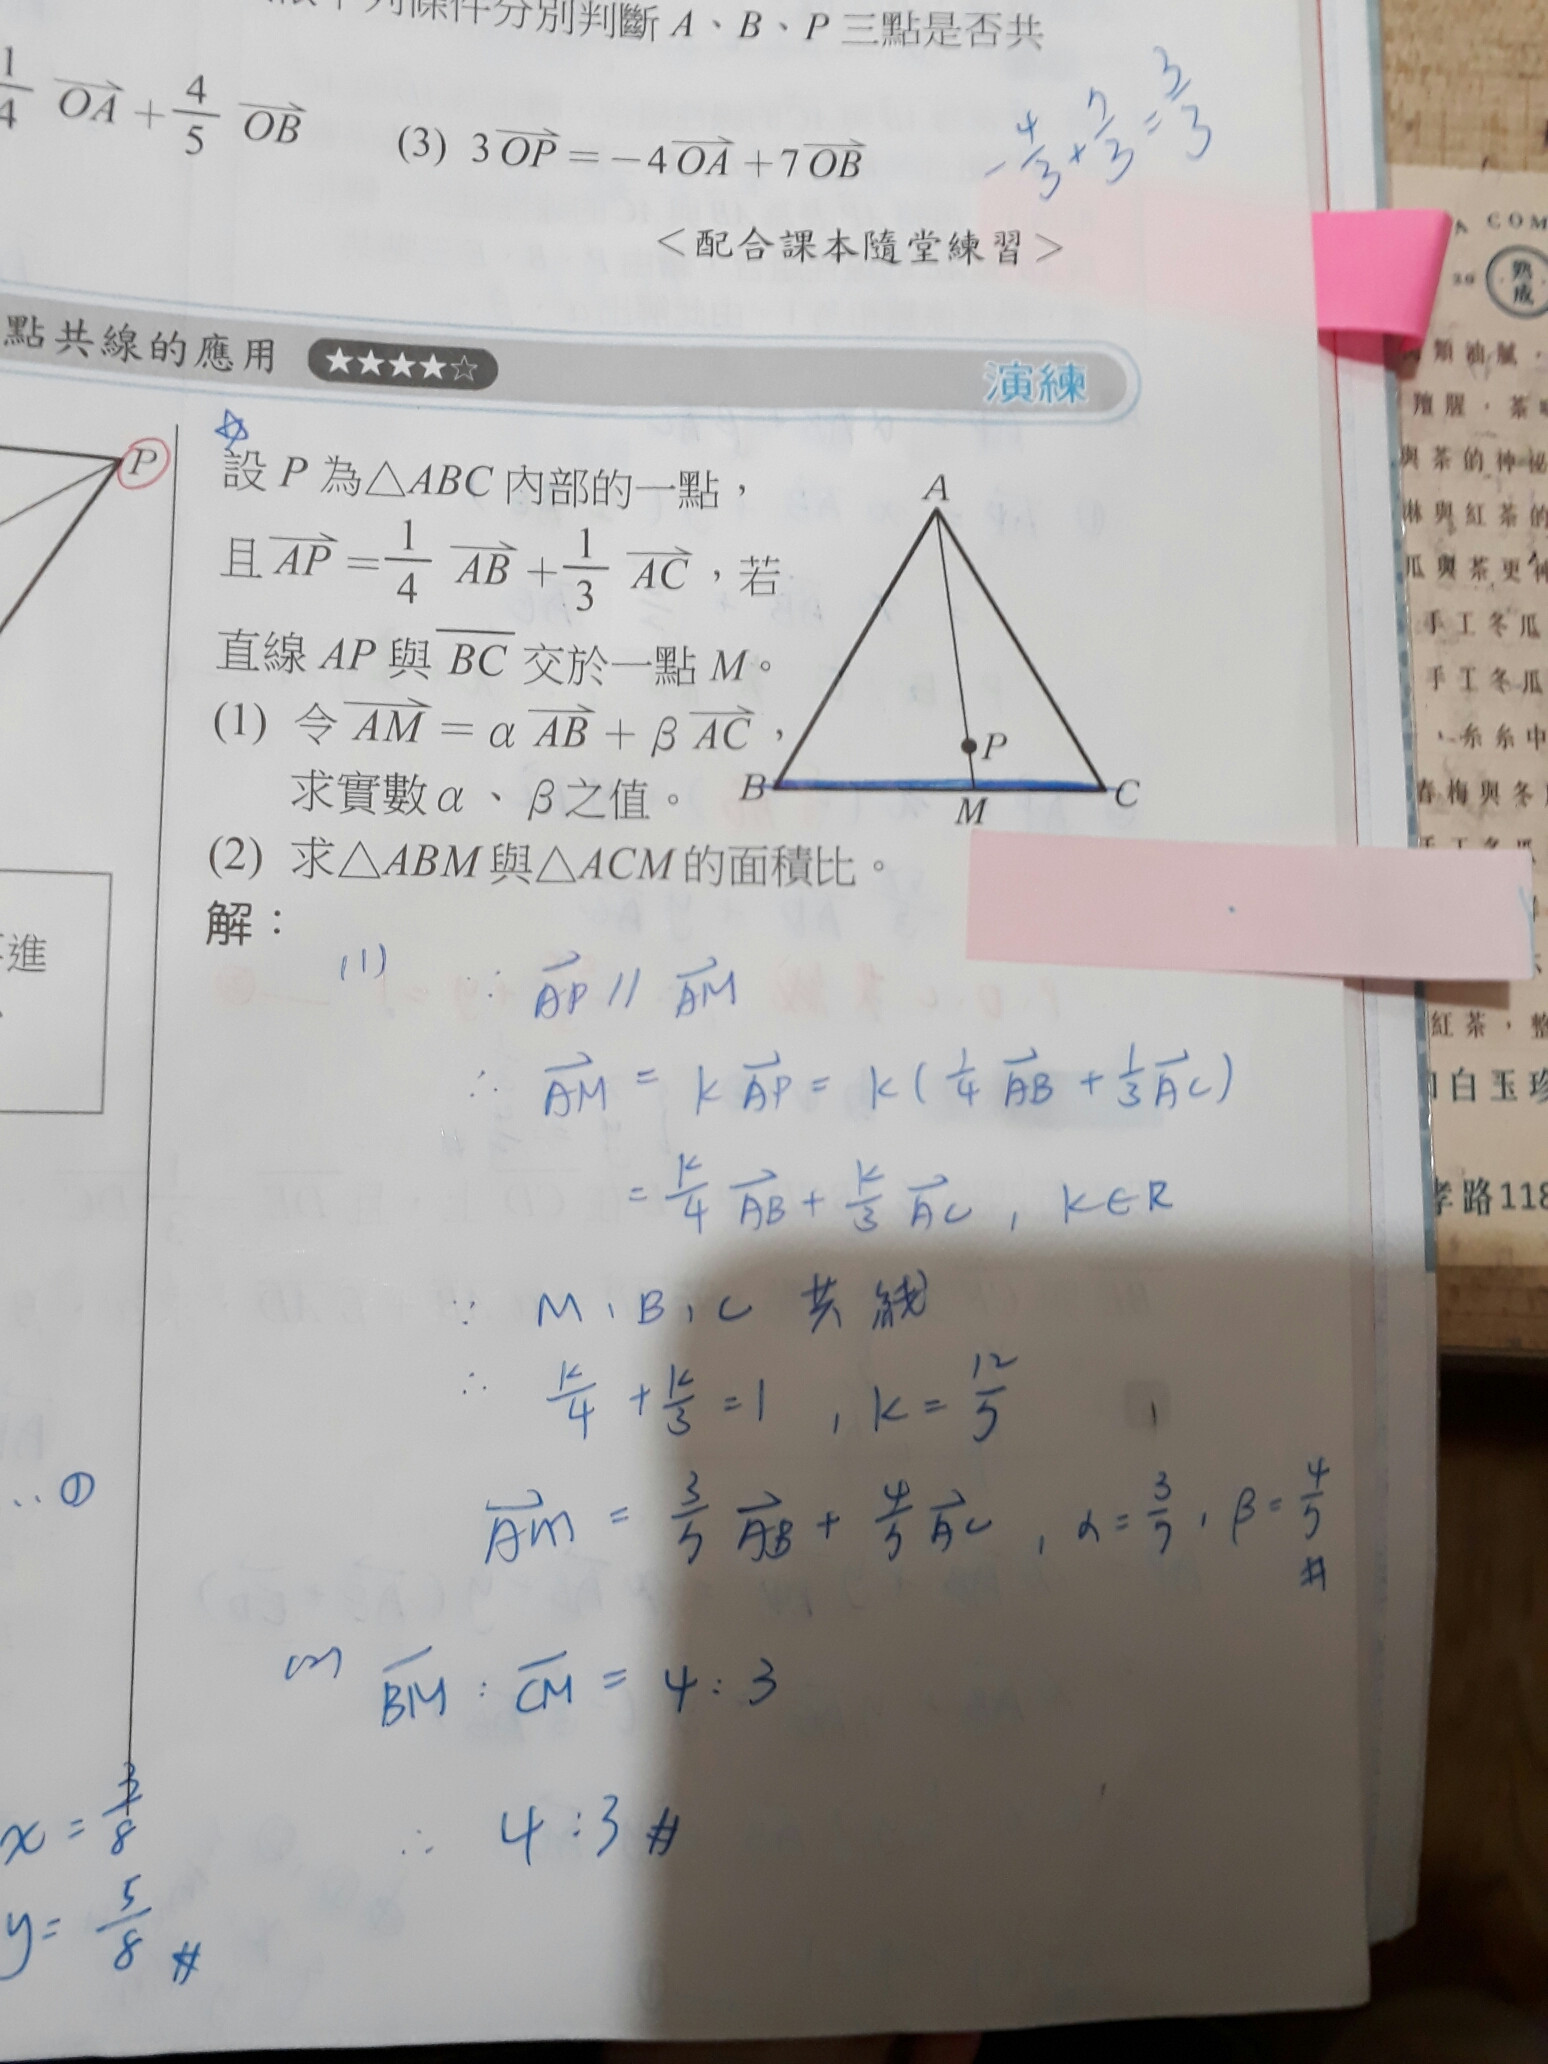 分別判斷 A、B、P 三點是否共
1/4 OA + 4/5 OB
(3) 3OP = -4OA + 7OB
-4/3 + 7/3 = 3/3
<配合課本隨堂練習>
點共線的應用 ★★★★☆ 演練
P
設 P 為△ABC 內部的一點，
且 AP = 1/4 AB + 1/3 AC，若
直線 AP 與 BC 交於一點 M。
(1) 令 AM = α AB + β AC，
求實數 α、β 之值。
(2) 求△ABM 與△ACM 的面積比。
A
P
B
M
C
解：
進
(1) ∵ AP // AM
∴ AM = k AP = k(1/4 AB + 1/3 AC)
= k/4 AB + k/3 AC , k∈R
∵ M, B, C 共線
∴ k/4 + k/3 = 1 , k = 12/7
AM = 3/7 AB + 4/7 AC , α = 3/7, β = 4/7 #
(2) BM : CM = 4 : 3
∴ 4 : 3 #
①
x = 3/8
y = 5/8 #
COM
熟成
類油膩，
羶腥，茶
與茶的神祕
淋與紅茶的
瓜與茶更神
手工冬瓜
手工冬瓜
，糸糸中
春梅與冬
紅茶，整
白玉珍
孝路118